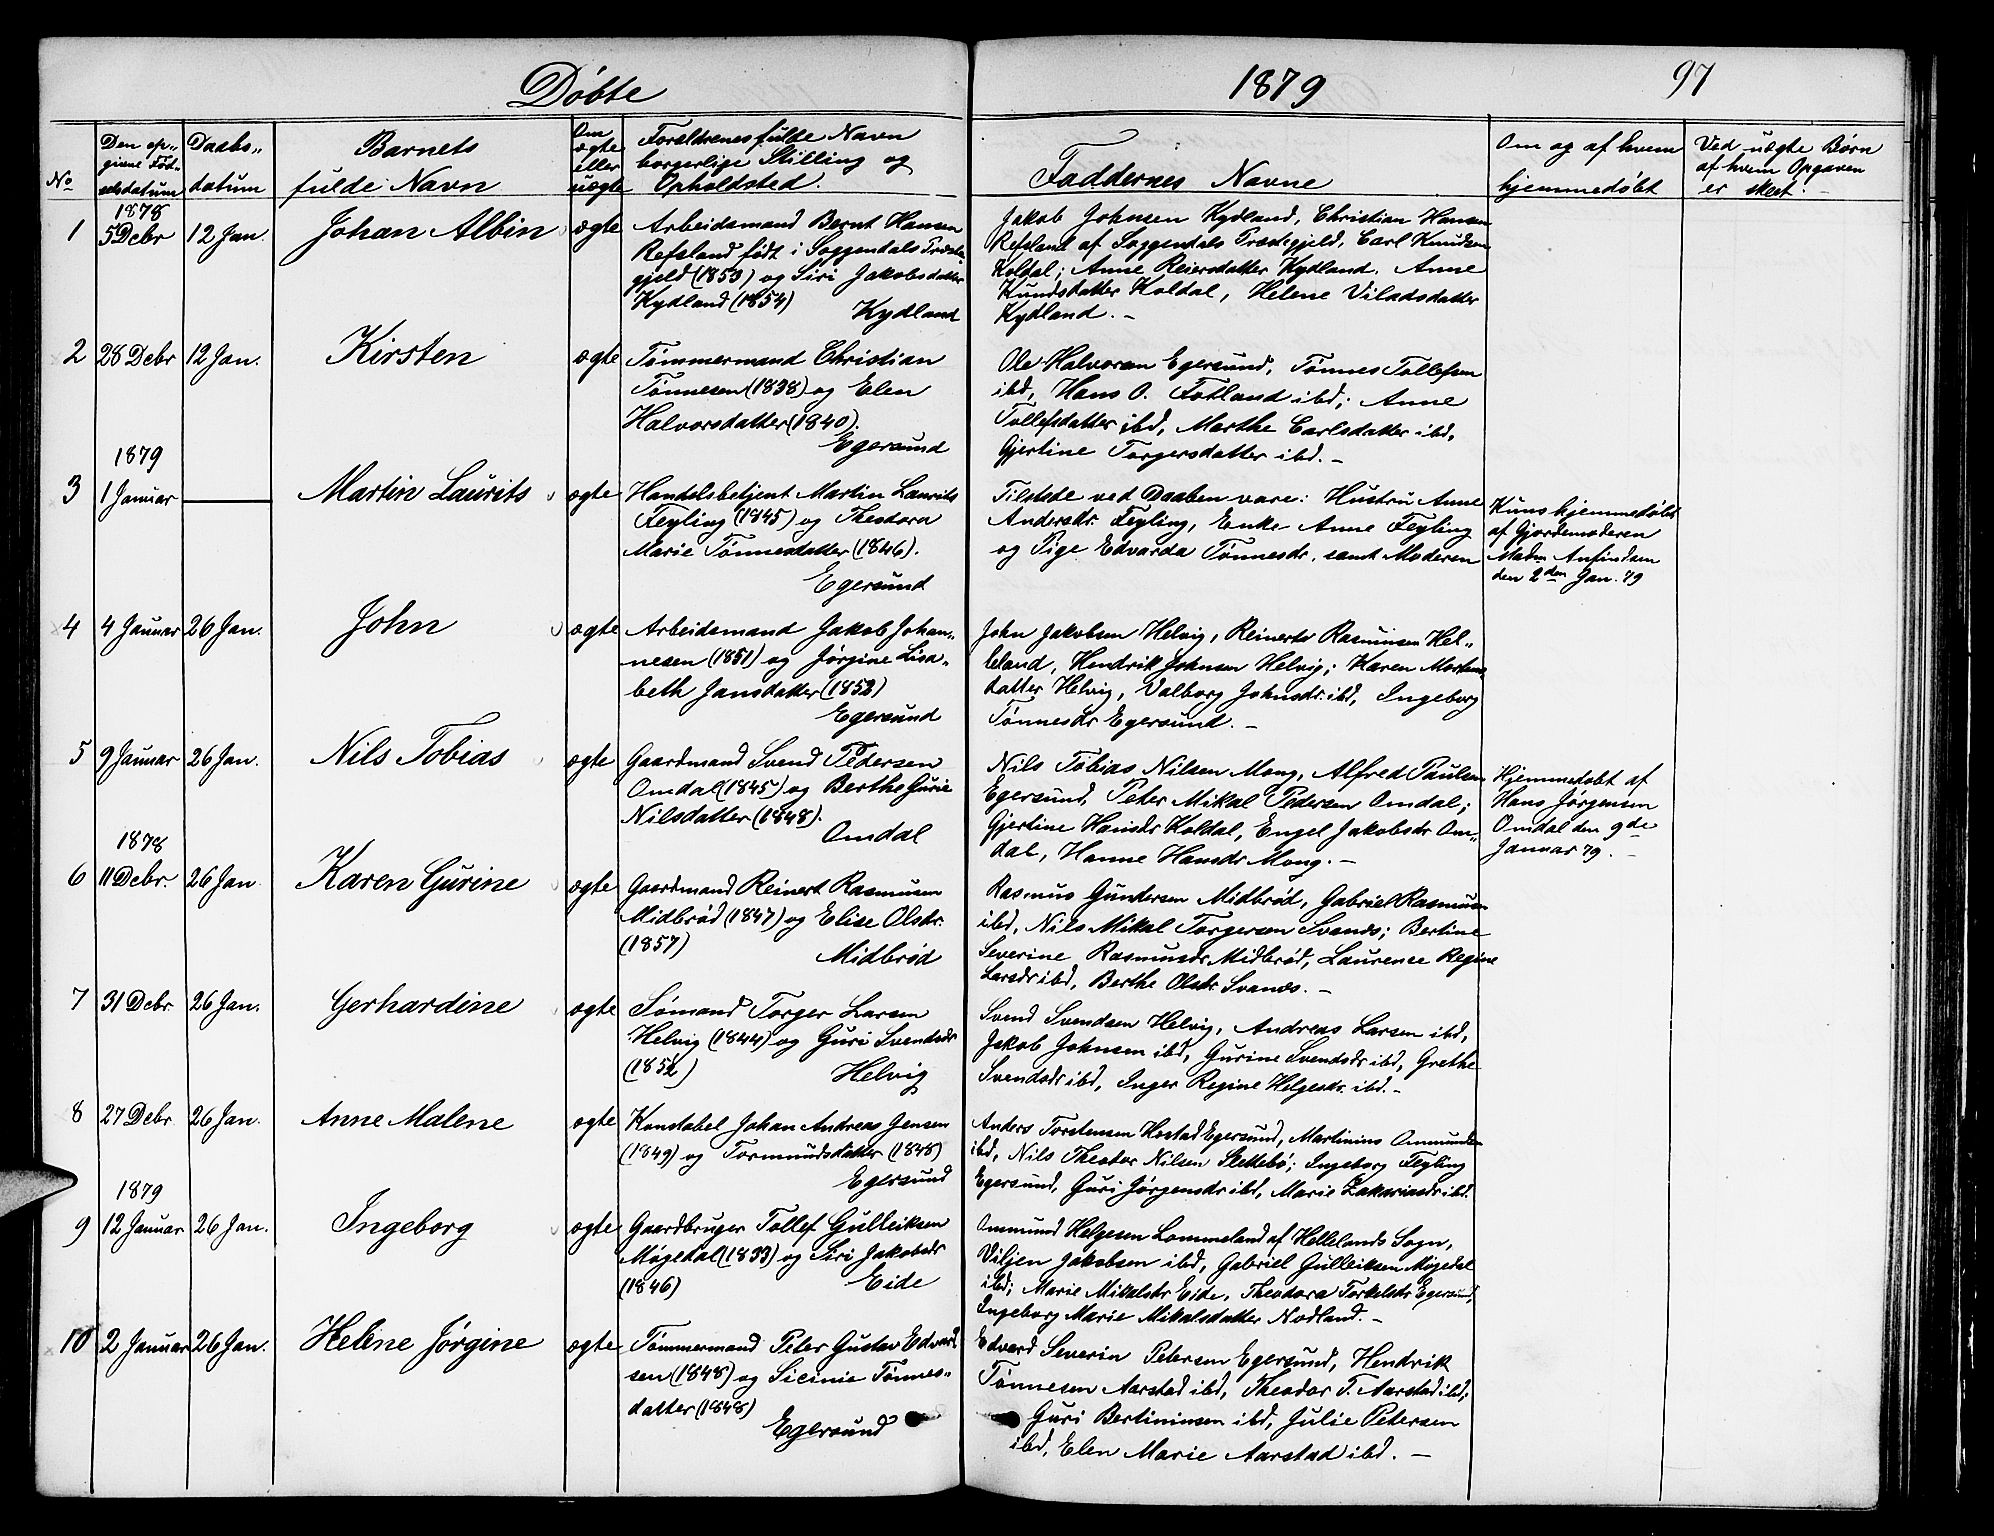 Døbte
1879
97
No
Den op-
givne Fød-
selsdatum
Daabs-
datum
Barnets
fulde Navn
Om
ægte
eller
uægte
Forældrenes fulde Navn
borgerlige Stilling og
Opholdsted.
Faddernes Navne
Om og af hvem
hjemmedøbt
Ved uægte Børn
af hvem Opgaven
er skeet.
1878
1
5 Debr
12 Jan.
Johan Albin
ægte
Arbeidsmand Bernt Hansen
Refsland født i Soggendals Præste-
gjeld (1853) og Siri Jakobsdatter
Kydland (1854)
Kydland
Jakob Johnsen Kydland, Christian Hansen
Refsland af Soggendals Præstegjeld, Carl Knudsen
Koldal; Anne Reiersdatter Kydland. Anne
Kundsdatter Koldal, Helene Viladsdatter
Kydland. –
2
28 Debr
12 Jan.
Kirsten
ægte
Tømmermand Christian
Tønnesen (1838) og Elen
Halvorsdatter (1840).
Egersund
Ole Halvorsen Egersund, Tønnes Tollefsen
ibd, Hans O. Fotland ibd; Anne
Tollefsdatter ibd, Marthe Carlsdatter ibd,
Gjertine Torgersdatter ibd. –
1879
3
1 Januar
Martin Laurits
ægte
Handelsbetjent Martin Laurits
Feyling (1845) og Theodora
Marie Tønnesdatter (1846).
Egersund
Tilstede ved Daaben vare: Hustru Anne
Andersdr. Feyling, Enke Anne Feyling
og Pige Edvarda Tønnesdr. samt Moderen
Kuns hjemmedøbt
af Gjordemoderen
Madm Anfindsen
den 2den Jan. 79
4
4 Januar
26 Jan.
John
ægte
Arbeidsmand Jakob Johan-
nesen (1851) og Jørgine Lisa-
beth Jansdatter (1853)
Egersund
John Jakobsen Helvig, Reinerts Rasmusen Hel-
leland, Hendrik Johnsen Helvig; Karen Mortens
datter Helvig, Valborg Johnsdr. ibd, Ingeborg
Tønnesdr Egersund. –
5
9 Januar
26 Jan.
Nils Tobias
ægte
Gaardmand Svend Pedersen
Omdal (1845) og Berthe Gurie
Nilsdatter (1848).
Omdal
Nils Tobias Nilsen Mong, Alfred Paulsen
Egersund, Peter Mikal Pedersen Omdal;
Gjertine Hansdr Koldal, Engel Jakobsdr Om-
dal, Hanne Hansdr Mong. –
Hjemmedøbt af
Hans Jørgensen
Omdal den 9de
Januar 79. –
1878
6
11 Debr.
26 Jan
Karen Gurine
ægte
Gaardmand Reinert Rasmusen
Midbrød (1847) og Elise Olsdr.
(1857)
Midbrød
Rasmus Gundersen Midbrød, Gabriel Rasmusen
ibd, Nils Mikal Torgersen Svanæs; Bertine
Severine Rasmusdr. Midbrød, Laurense Regine
Larsdr ibd, Berthe Olsdr Svanæs. –
7
31 Debr.
26 Jan.
Gerhardine
ægte
Sømand Torger Larsen
Helvig (1844) og Guri Svendsdr
(1852)
Helvig
Svend Svendsen Helvig, Andreas Larsen ibd,
Jakob Johnsen ibd, Gurine Svendsdr ibd, Grethe
Svendsdr ibd, Inger Regine Helgesdr. ibd. –
8
27 Debr
26 Jan.
Anne Malene
ægte
Konstabel Johan Andreas Jensen
(1849) og Tormundsdatter (1848)
Egersund
Anders Torstensen Hestad Egersund, Martinius Ommundsen
ibd, Nils Theodor Nilsen Slettebø; Ingeborg Feyling
Egersund, Guri Jørgensdr ibd, Marie Zakariasdr ibd.
1879
9
12 Januar
26 Jan.
Ingeborg
ægte
Gaardbruger Tollef Gulleiksen
Møgedal (1833) og Siri Jakobsdr
(1846)
Eide
Ommund Helgesen Lommeland af Hellelands Sogn,
Viljen Jakobsen ibd, Gabriel Gulleiksen Møgedal
ibd; Marie Mikalsdr Eide, Theodora Torkelsdr Egersund,
Ingeborg Marie Mikalsdatter Nodland. –
10
2 Januar
26 Jan.
Heline Jørgine
ægte
Tømmermand Peter Gustav Edvard-
sen (1848) og Sicinie Tønnes-
datter (1848)
Egersund
Edvard Severin Petersen Egersund, Hendrik
Tønnesen Aarstad ibd, Theodor T. Aarstad ibd;
Guri Bertininsen ibd, Julie Petersen
ibd, Elen Marie Aarstad ibd. –